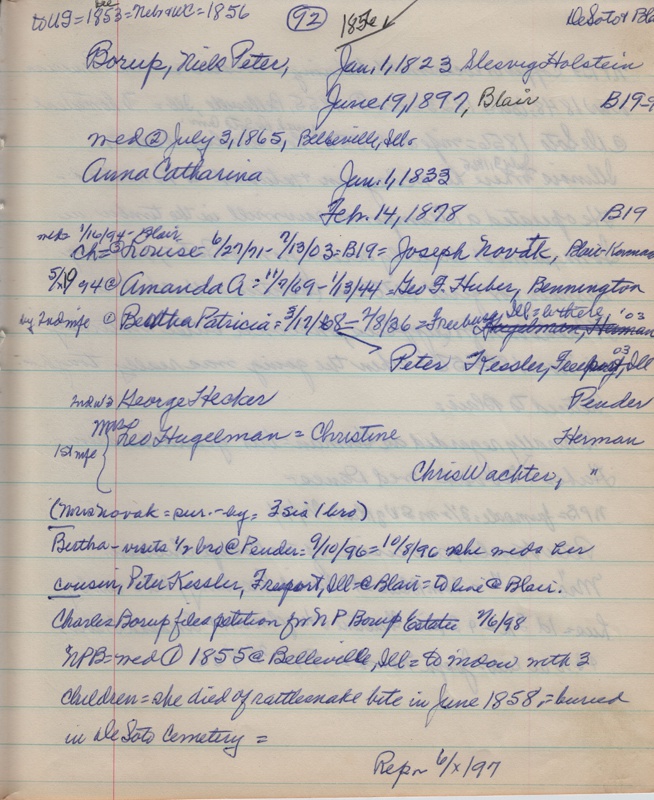 to US = 1853 = Neb & WC = 1856 (92) 1856 DeSoto & Bla
Borup, Niels Peter, Jan. 1, 1823 Slesvig Holstein
June 19, 1897, Blair B19-9
med ② July 3, 1865, Belleville, Ill.
Anna Catharina Jan. 1, 1833
Feb. 14, 1878 B19
1/16/94 - Blair
Ch = ③ Louise = 6/27/71 - 7/13/03 = B19 = Joseph Novak, Blair-Kennard
5/x/94 ② Amanda A = 11/7/69 - 1/13/44 = Geo F. Huber, Bennington
by 2nd wife ① Beatha Patricia = 3/12/68 = 7/8/36 = Freeburg, Ill = with '03
Hugelman, Herman
Peter Kessler, Freeport, Ill
03
George Hecker Pender
Mrs Leo Hugelman = Christine Herman
1st wife
Chris Wachter, "
(Mrs Novak = sur. - by = 3 sis 1 bro)
Bertha - visits 1/2 bro @ Pender = 9/10/96 = 10/8/96 she weds her
cousin, Peter Kessler, Freeport, Ill = @ Blair = to live @ Blair.
Charles Borup files petition for N P Borup Estate 7/6/98
NPB = wed ① 1855 @ Belleville, Ill = to widow with 3
children = she died of rattlesnake bite in June 1858, = buried
in DeSoto Cemetery =
Rep 6/x/97